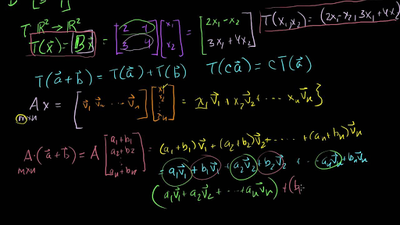 T: R² → R²
T(x⃗) = Bx⃗ = [2 -1; 3 4] [x₁; x₂] = [2x₁ - x₂; 3x₁ + 4x₂]
T(x₁, x₂) = (2x₁ - x₂, 3x₁ + 4x₂)
T(a⃗ + b⃗) = T(a⃗) + T(b⃗) T(ca⃗) = cT(a⃗)
Ax⃗ = [v⃗₁ v⃗₂ ⋯ v⃗ₙ] = x₁v⃗₁ + x₂v⃗₂ + ⋯ xₙv⃗ₙ
m×n
A·(a⃗ + b⃗) = A [a₁+b₁; a₂+b₂; ⋮; aₙ+bₙ] = (a₁+b₁)v⃗₁ + (a₂+b₂)v⃗₂ + ⋯ + (aₙ+bₙ)v⃗ₙ
m×n
= a₁v⃗₁ + b₁v⃗₁ + a₂v⃗₂ + b₂v⃗₂ + ⋯ aₙv⃗ₙ + bₙv⃗ₙ
(a₁v⃗₁ + a₂v⃗₂ + ⋯ + aₙv⃗ₙ) + (b₁